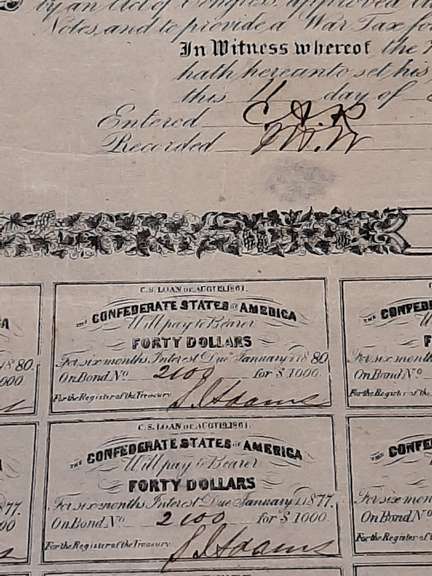 by an Act of Congress, approved
Notes, and to provide a War Tax for
In Witness whereof the
hath hereunto set his
this 11 day of
Entered C. A. R
Recorded
C. S. LOAN OF AUG 19, 1861.
THE CONFEDERATE STATES OF AMERICA
Will pay to Bearer
FORTY DOLLARS
For six months Interest Due January 1, 1880
On Bond No 2100 for $1000.
For the Register of the Treasury S J Adams
C. S. LOAN OF AUG 19, 1861.
THE CONFEDERATE STATES OF AMERICA
Will pay to Bearer
FORTY DOLLARS
For six months Interest Due January 1, 1877.
On Bond No 2100 for $1000.
For the Register of the Treasury S J Adams
1880.
000
THE CONFEDE
For six mon
On Bond No
For the Register of the
877.
000.
THE CONFEDE
For six mon
On Bond No
For the Register of the